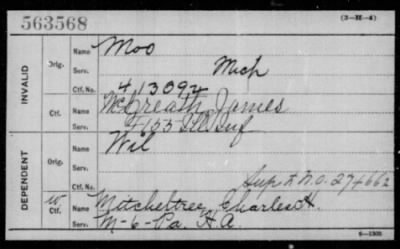 563568
(3-M-4)
INVALID
Orig.
Name Moo
Serv. Mich
Ctf. No. 413092
Ctf.
Name McCreath, James
Serv. F 155 Ill. Inf
DEPENDENT
Orig.
Name Wil
Serv.
Supt N.O. 274662
W
Ctf.
Name Mitcheltree, Charles H.
Serv. M-6-Pa. H A.
6-1302